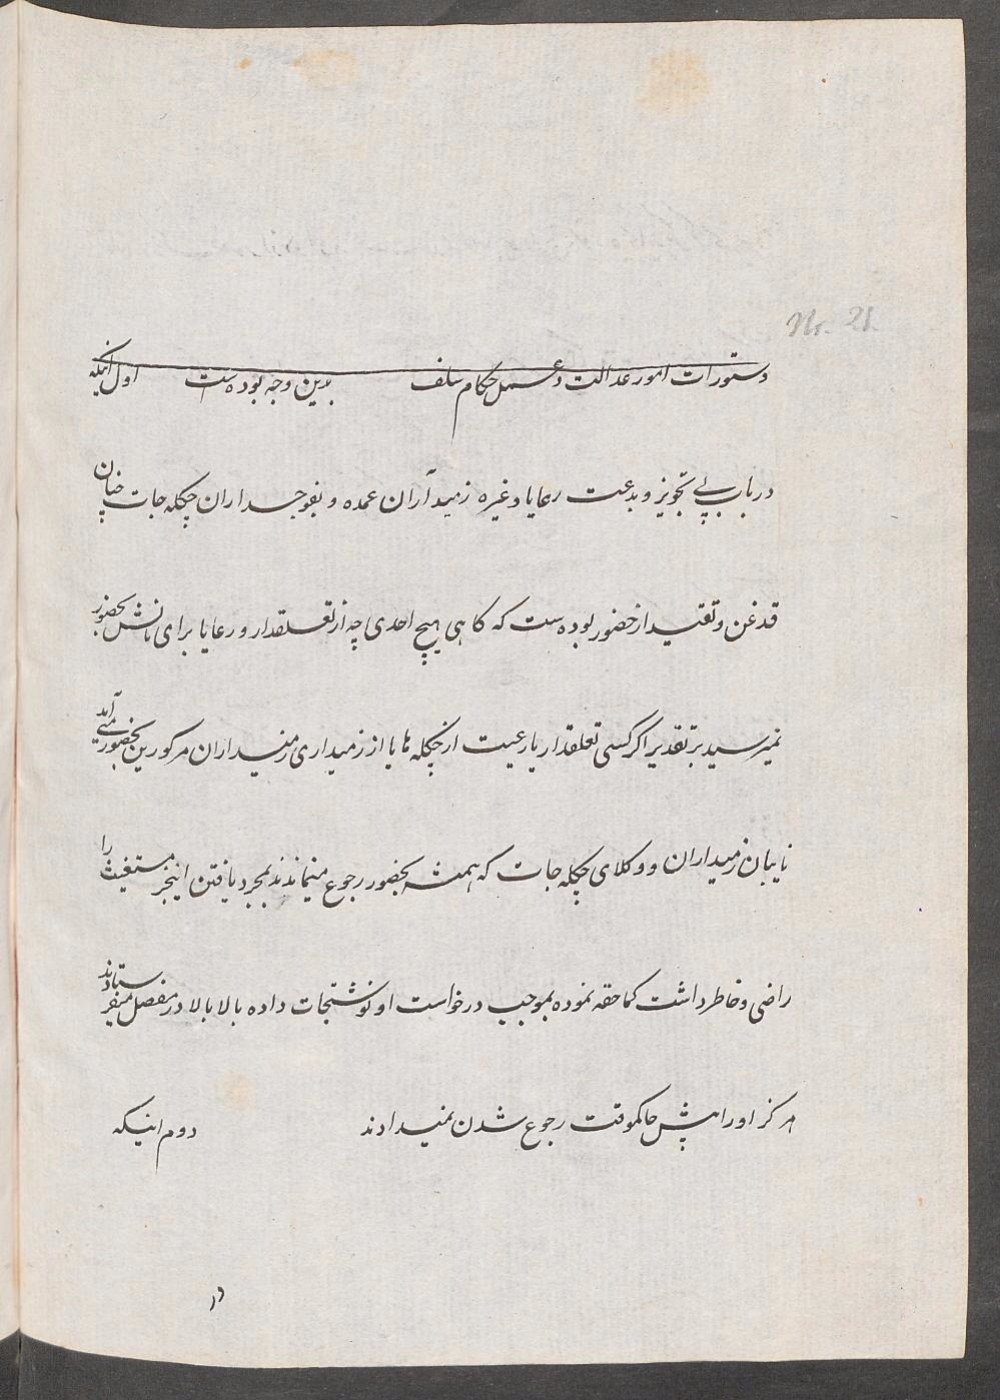 Nr. 21.
دستورات امور عدالت و عمل حکام سلف بدین وجه بوده است اول اینکه
در باب بی تجویز و بدعت رعایا وغیره زمیندآران عمده و بفوجداران چکله جات چنان
قدغن و تقید از حضور بوده است که کاهی هیچ احدی چه از تعلقدار و رعایا برای نالش بحضور
نمیرسید بر تقدیر اکر کسی تعلقدار یا رعیت از چکله ها یا از زمیداری زمینداران مرکورین بحضور می آمد
نایبان زمیداران و وکلای چکله جات که همیشه بحضور رجوع میماندند بمجرد یافتن اینخبر مستغیث را
راضی و خاطرداشت کماحقه نموده بموجب درخواست او نوشتجات داده بالا بالا در مفصل میفرستادند
هرکز او را پیش حاکموقت رجوع شدن نمیدادند دوم اینکه
در